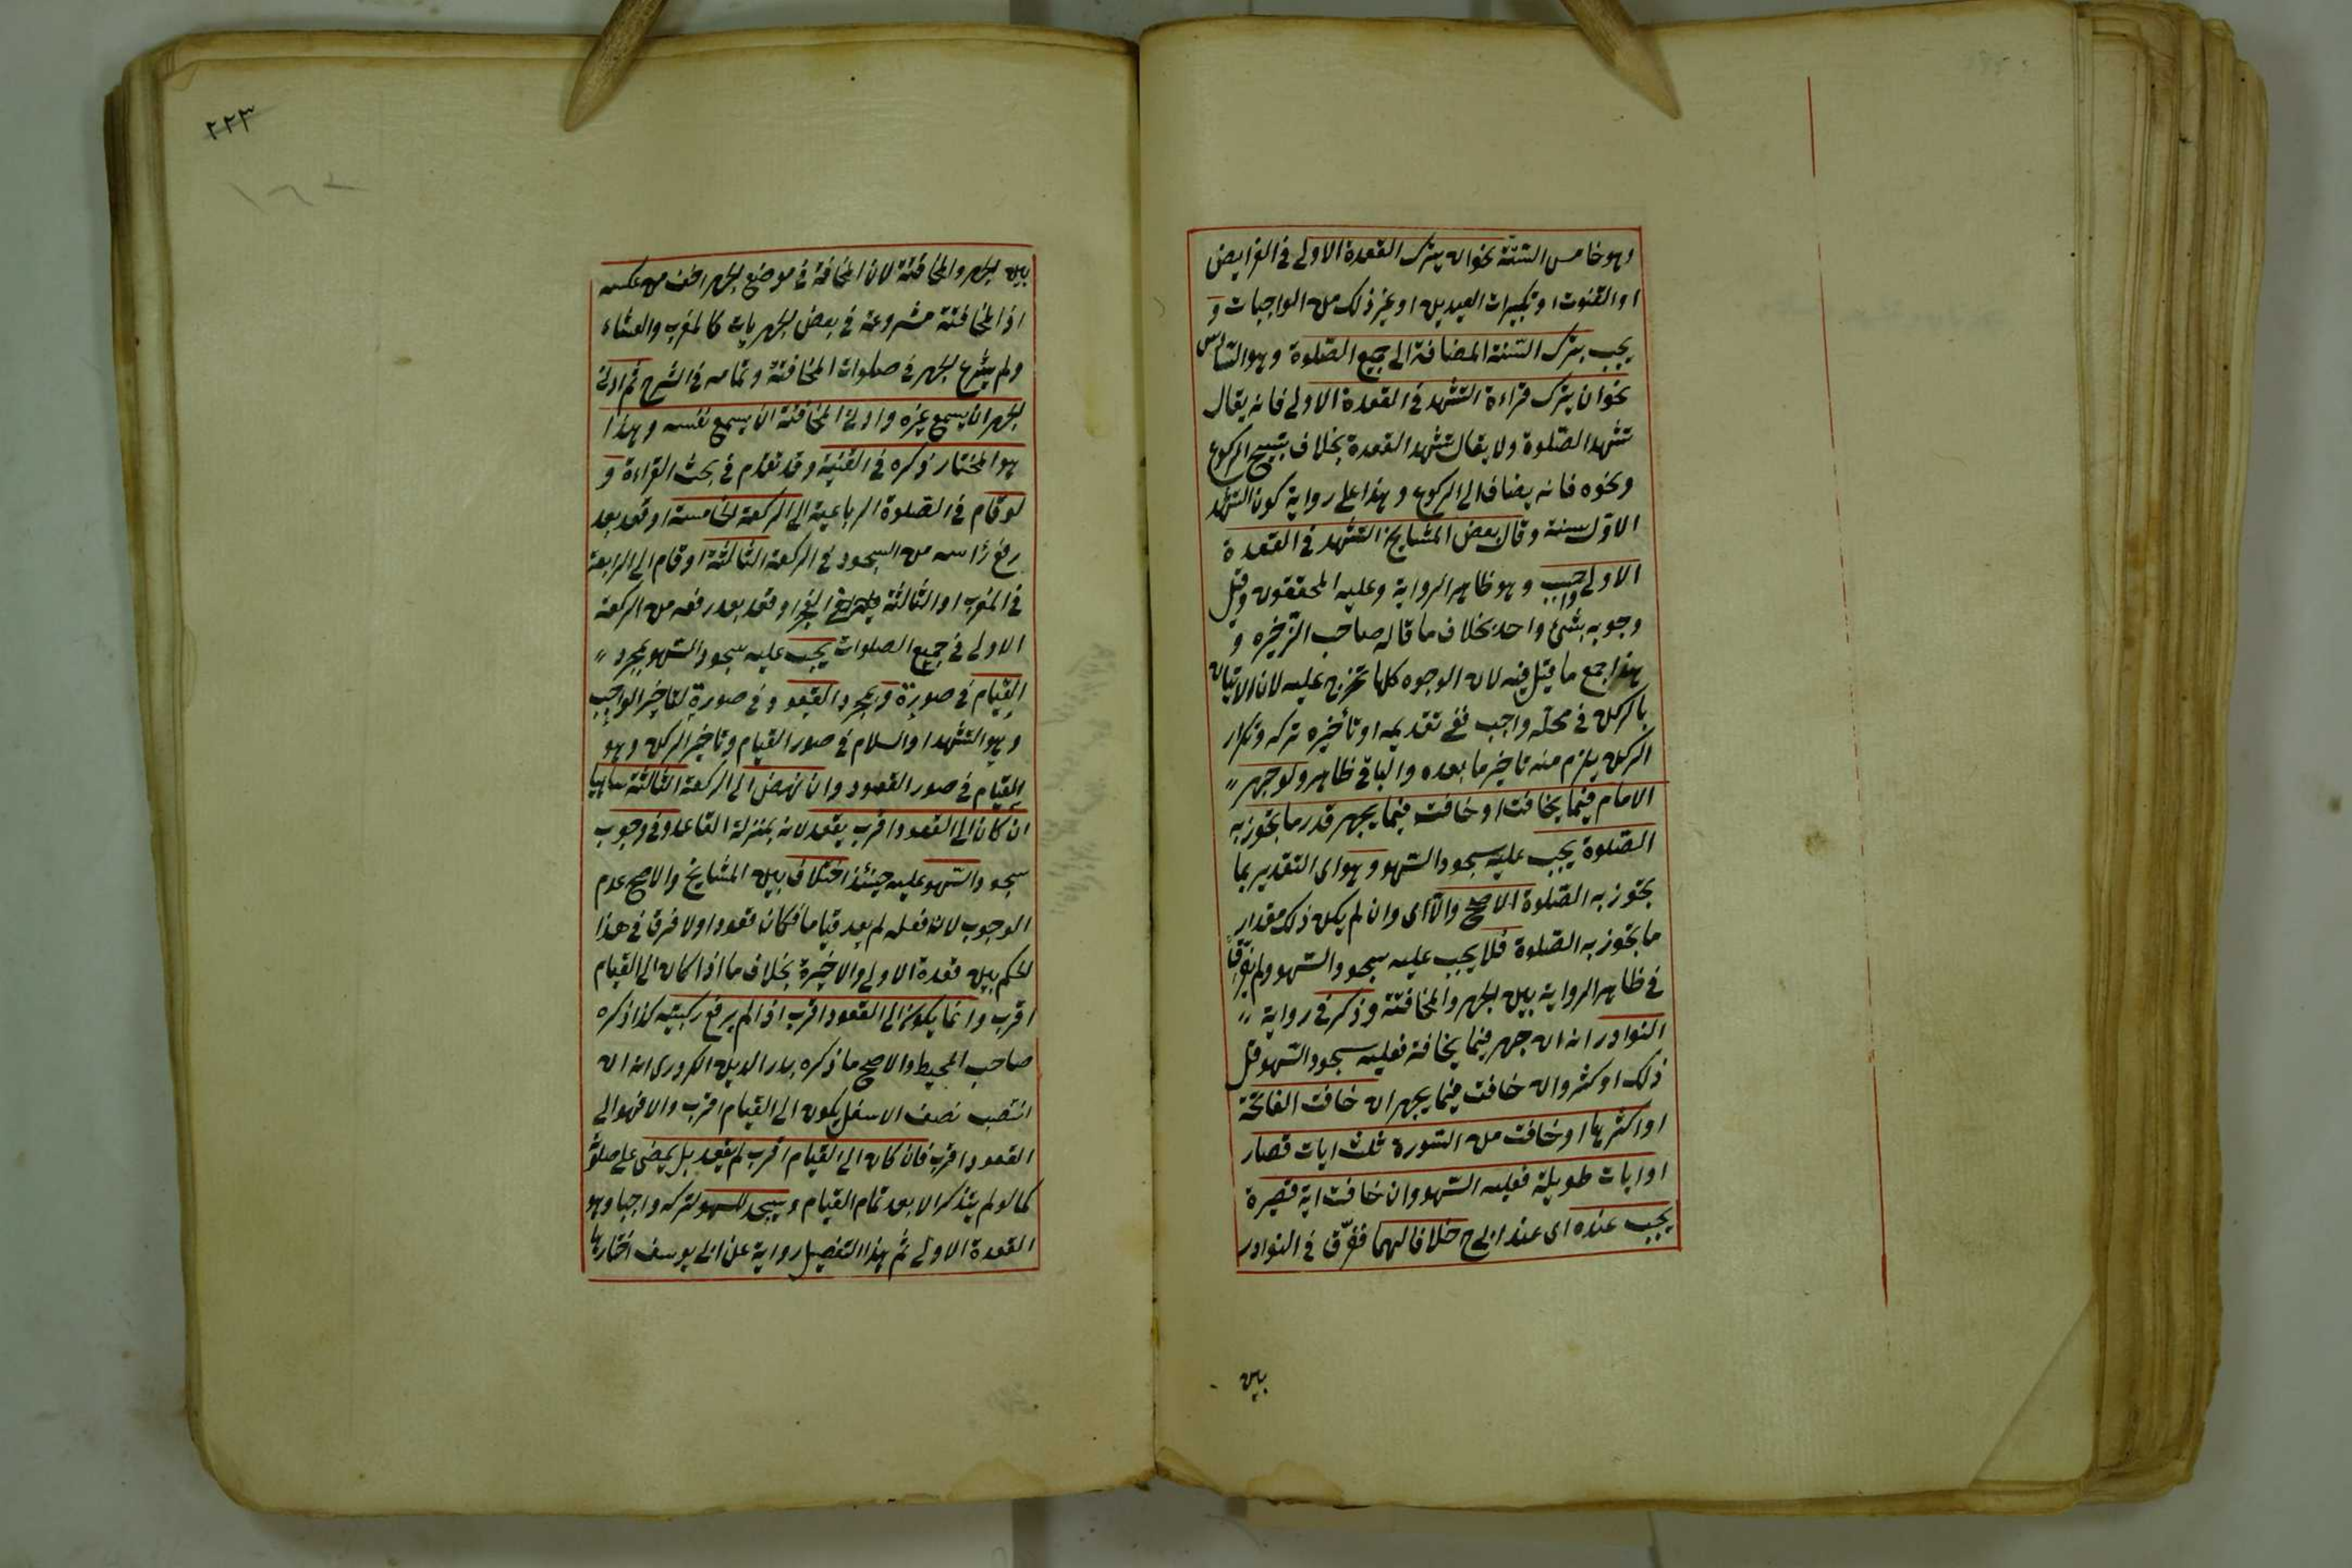 وهو خامس الستة نحو ان يترك القعدة الاولى في الفرايض
او القنوت او تكبيرات العيدين او غير ذلك من الواجبات و
يجب بترك السنة المضافة الى جميع الصلوة وهو السادس
نحو ان يترك قراءة التشهد في القعدة الاولى فانه يقال
تشهد الصلوة ولا يقال تشهد القعدة بخلاف تسبيح الركوع
ونحوه فانه يضاف الى الركوع وهذا على رواية كون التشهد
الاول سنة وقال بعض المشايخ التشهد في القعدة
الاولى واجب وهو ظاهر الرواية وعليه المحققون وقيل
وجوبه بشئ واحد بخلاف ما قاله صاحب الذخيره و
هذا جمع ما قيل فيه لان الوجوه كلها تخرج عليه لان الاتيان
بالركن في محله واجب ففي تقديمه او تأخيره تركه وتكرار
الركن يلزم منه تاخير ما بعده والباقي ظاهر ولو جهر
الامام فيما يخافت او خافت فيما يجهر قدر ما تجوز به
الصلوة يجب عليه سجود السهو وهو اى التقدير بما
تجوز به الصلوة الاصح والا اى وان لم يكن ذلك مقدار
ما تجوز به الصلوة فلا يجب عليه سجود السهو ولم يفرق
في ظاهر الرواية بين الجهر والمخافتة وذكر في رواية
النوادر انه ان جهر فيما يخافت فعليه سجود السهو قل
ذلك او كثر وان خافت فيما يجهر ان خافت الفاتحة
او اكثرها او خافت من السورة ثلث ايات قصار
او ايات طويلة فعليه السهو وان خافت اية قصيرة
يجب عنده اى عند ابي ح خلافا لهما ففرق في النوادر
بين
٢٢٣
بين الجهر والمخافتة لان المخافة في موضع الجهر اخف من عكسه
اذ المخافتة مشروعة في بعض الجهريات كالمغرب والعشاء
ولم يشرع الجهر في صلوات المخافتة وتمامه في الشرح ثم ادنى
الجهر ان يسمع غيره وادنى المخافتة ان يسمع نفسه وهذا
هو المختار ذكره في القنية وقد تقدم في بحث القراءة و
لو قام في الصلوة الرباعية الى الركعة الخامسة او قعد بعد
رفع رأسه من السجود في الركعة الثالثة او قام الى الرابعة
في المغرب او الثالثة في الفجر او قعد بعد رفعه من الركعة
الاولى في جميع الصلوات يجب عليه سجود السهو بمجرد
القيام في صورة وبمجرد القعود في صورة لتاخير الواجب
وهو التشهد او السلام في صور القيام وتاخير الركن وهو
القيام في صور القعود وان نهض الى الركعة الثالثة ساهيا
ان كان الى القعود اقرب يقعد لانه بمنزلة القاعد وفي وجوب
سجود السهو عليه حينئذ اختلاف بين المشايخ والاصح عدم
الوجوب لان فعله لم يعد قياما فكان قعودا ولا فرق في هذا
الحكم بين قعدة الاولى والاخيرة بخلاف ما اذا كان الى القيام
اقرب وانما يكون الى القعود اقرب اذا لم يرفع ركبتيه كذا ذكره
صاحب المحيط والاصح ما ذكره بدر الدين الكردرى انه ان
انتصب نصف الاسفل يكون الى القيام اقرب والا فهو الى
القعود اقرب فان كان الى القيام اقرب لم يقعد بل يمضى على صلوته
كما لو لم يتذكر الا بعد تمام القيام ويسجد للسهو لتركه واجبا وهو
القعدة الاولى ثم هذا التفصيل رواية عن ابى يوسف اختارها